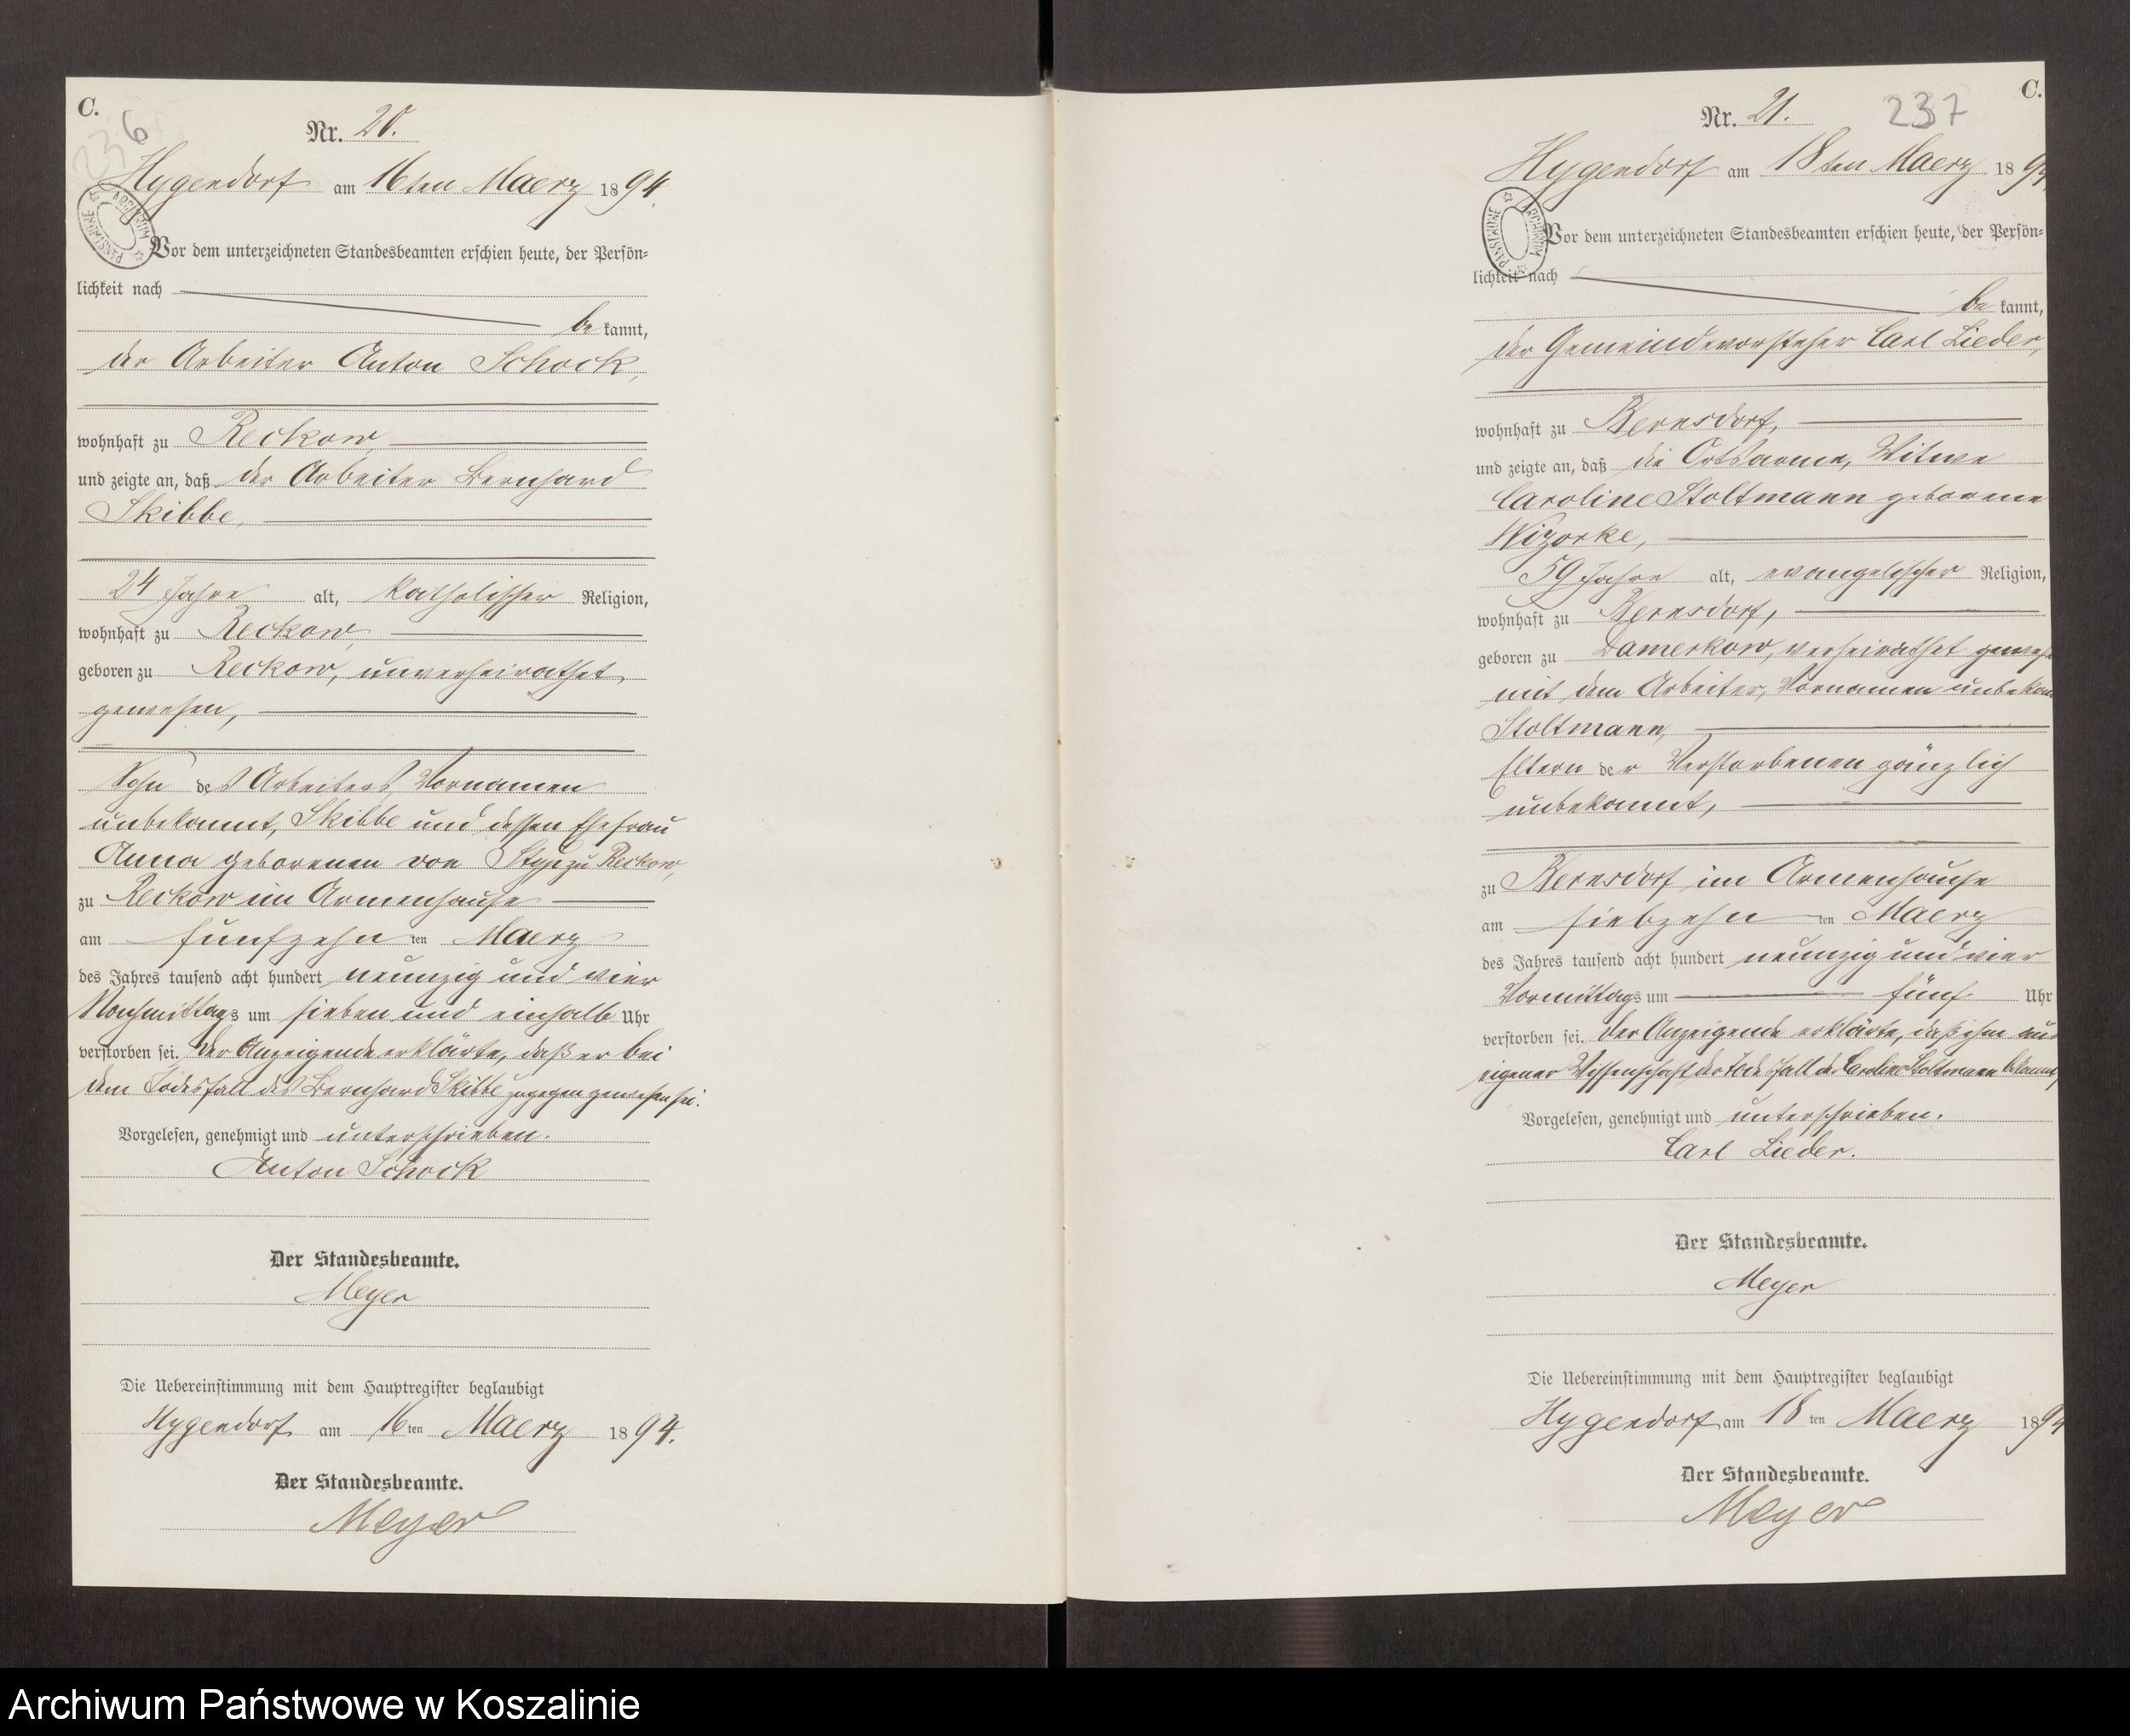 C.
236
Nr. 20.
Hygendorf am 16ten Maerz 1894.
PAŃSTWOWE ARCHIWUM
Vor dem unterzeichneten Standesbeamten erschien heute, der Persön-
lichkeit nach
be kannt,
der Arbeiter Anton Schock,
wohnhaft zu Reckow,
und zeigte an, daß der Arbeiter Bernhard
Skibbe,
24 Jahre alt, katholischer Religion,
wohnhaft zu Reckow,
geboren zu Reckow, unverheirathet
gewesen,
Sohn des Arbeiters, Vornamen
unbekannt, Skibbe und dessen Ehefrau
Anna geborenen von Styp zu Reckow,
zu Reckow im Armenhause
am fünfzehn ten Maerz
des Jahres tausend acht hundert neunzig und vier
Nachmittags um sieben und einhalb Uhr
verstorben sei. Der Anzeigende erklärte, daß er bei
dem Todesfall des Bernhard Skibbe zugegen gewesen sei.
Vorgelesen, genehmigt und unterschrieben.
Anton Schock
Der Standesbeamte.
Meyer
Die Uebereinstimmung mit dem Hauptregister beglaubigt
Hygendorf am 16ten Maerz 1894.
Der Standesbeamte.
Meyer
C.
237
Nr. 21.
Hygendorf am 18ten Maerz 1894.
PAŃSTWOWE ARCHIWUM
Vor dem unterzeichneten Standesbeamten erschien heute, der Persön-
lichkeit nach
be kannt,
der Gemeindevorsteher Carl Lieder,
wohnhaft zu Bernsdorf,
und zeigte an, daß die Ortsarme, Witwe
Caroline Stoltmann geborene
Wizorke,
59 Jahre alt, evangelischer Religion,
wohnhaft zu Bernsdorf,
geboren zu Damerkow, verheirathet gewese
mit dem Arbeiter, Vornamen unbekan
Stoltmann,
Eltern der Verstorbenen gänzlich
unbekannt,
zu Bernsdorf im Armenhause
am siebzehn ten Maerz
des Jahres tausend acht hundert neunzig und vier
Vormittags um fünf Uhr
verstorben sei. Der Anzeigende erklärte, daß ihm aus
eigener Wissenschaft der Todesfall der Caroline Stoltmann bekannt,
Vorgelesen, genehmigt und unterschrieben.
Carl Lieder.
Der Standesbeamte.
Meyer
Die Uebereinstimmung mit dem Hauptregister beglaubigt
Hygendorf am 18 ten Maerz 1894
Der Standesbeamte.
Meyer
Archiwum Państwowe w Koszalinie